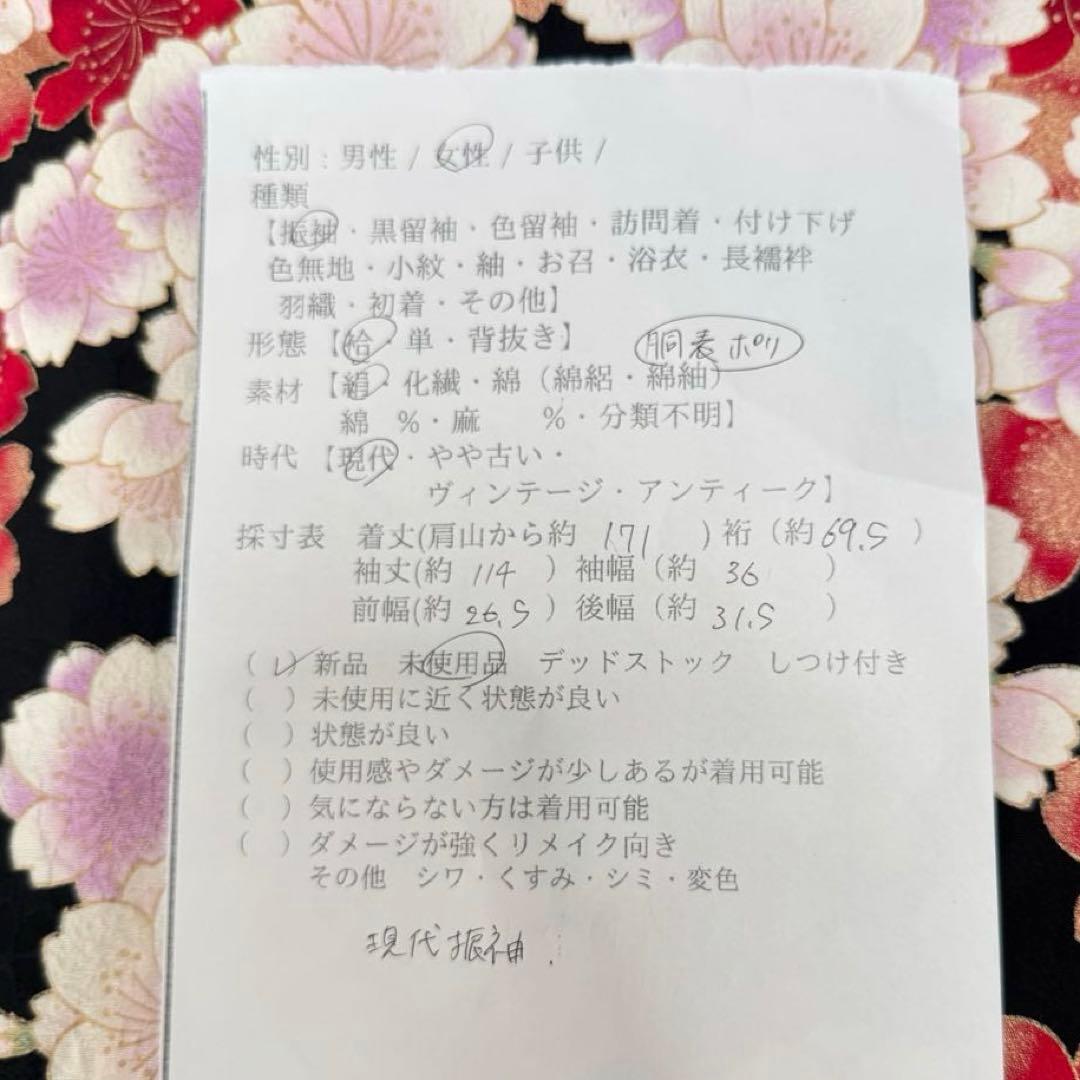 性別：男性 / 女性 / 子供 /
種類
【振袖・黒留袖・色留袖・訪問着・付け下げ
色無地・小紋・紬・お召・浴衣・長襦袢
羽織・初着・その他】
形態【袷・単・背抜き】 胴表 ポリ
素材【絹・化繊・綿（綿絽・綿紬）
綿 %・麻 %・分類不明】
時代【現代・やや古い・
ヴィンテージ・アンティーク】
採寸表 着丈(肩山から約 171 ) 裄（約 69.5 ）
袖丈(約 114 ) 袖幅（約 36 ）
前幅(約 26.5 ) 後幅（約 31.5 ）
(レ) 新品 未使用品 デッドストック しつけ付き
( ) 未使用に近く状態が良い
( ) 状態が良い
( ) 使用感やダメージが少しあるが着用可能
( ) 気にならない方は着用可能
( ) ダメージが強くリメイク向き
その他 シワ・くすみ・シミ・変色
現代振袖.